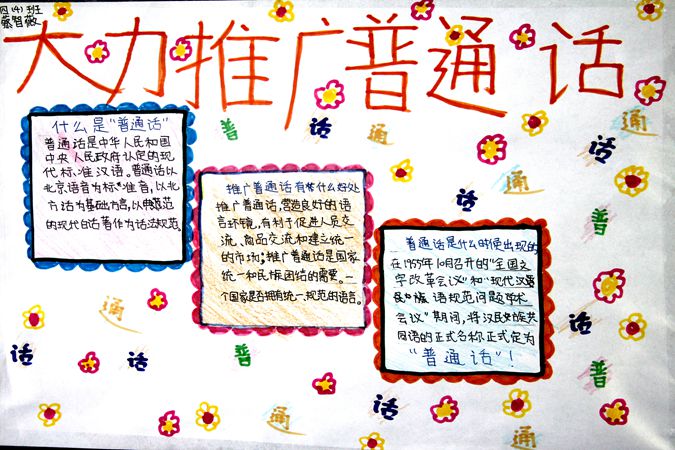 四(4)班
蔡智薇
大力推广普通话
什么是"普通话"
普通话是中华人民和国
中央人民政府认定的现
代标准汉语。普通话以
北京语音为标准音,以北
方话为基础方言,以典范
的现代白话著作为语法规范。
推广普通话有什么好处
推广普通话,营造良好的语
言环境,有利于促进人员交
流、商品交流和建立统一
的市场;推广普通话是国家
统一和民族团结的需要。一
个国家是否拥有统一、规范的语言。
普通话是什么时候出现的
在1955年10月召开的"全国文
字改革会议"和"现代汉
语规范问题学术
会议"期间,将汉民族共
同语的正式名称正式定为
"普通话"!
普
话
通
通
话
普
话
通
话
通
话
话
话
普
话
通
话
普
话
通
通